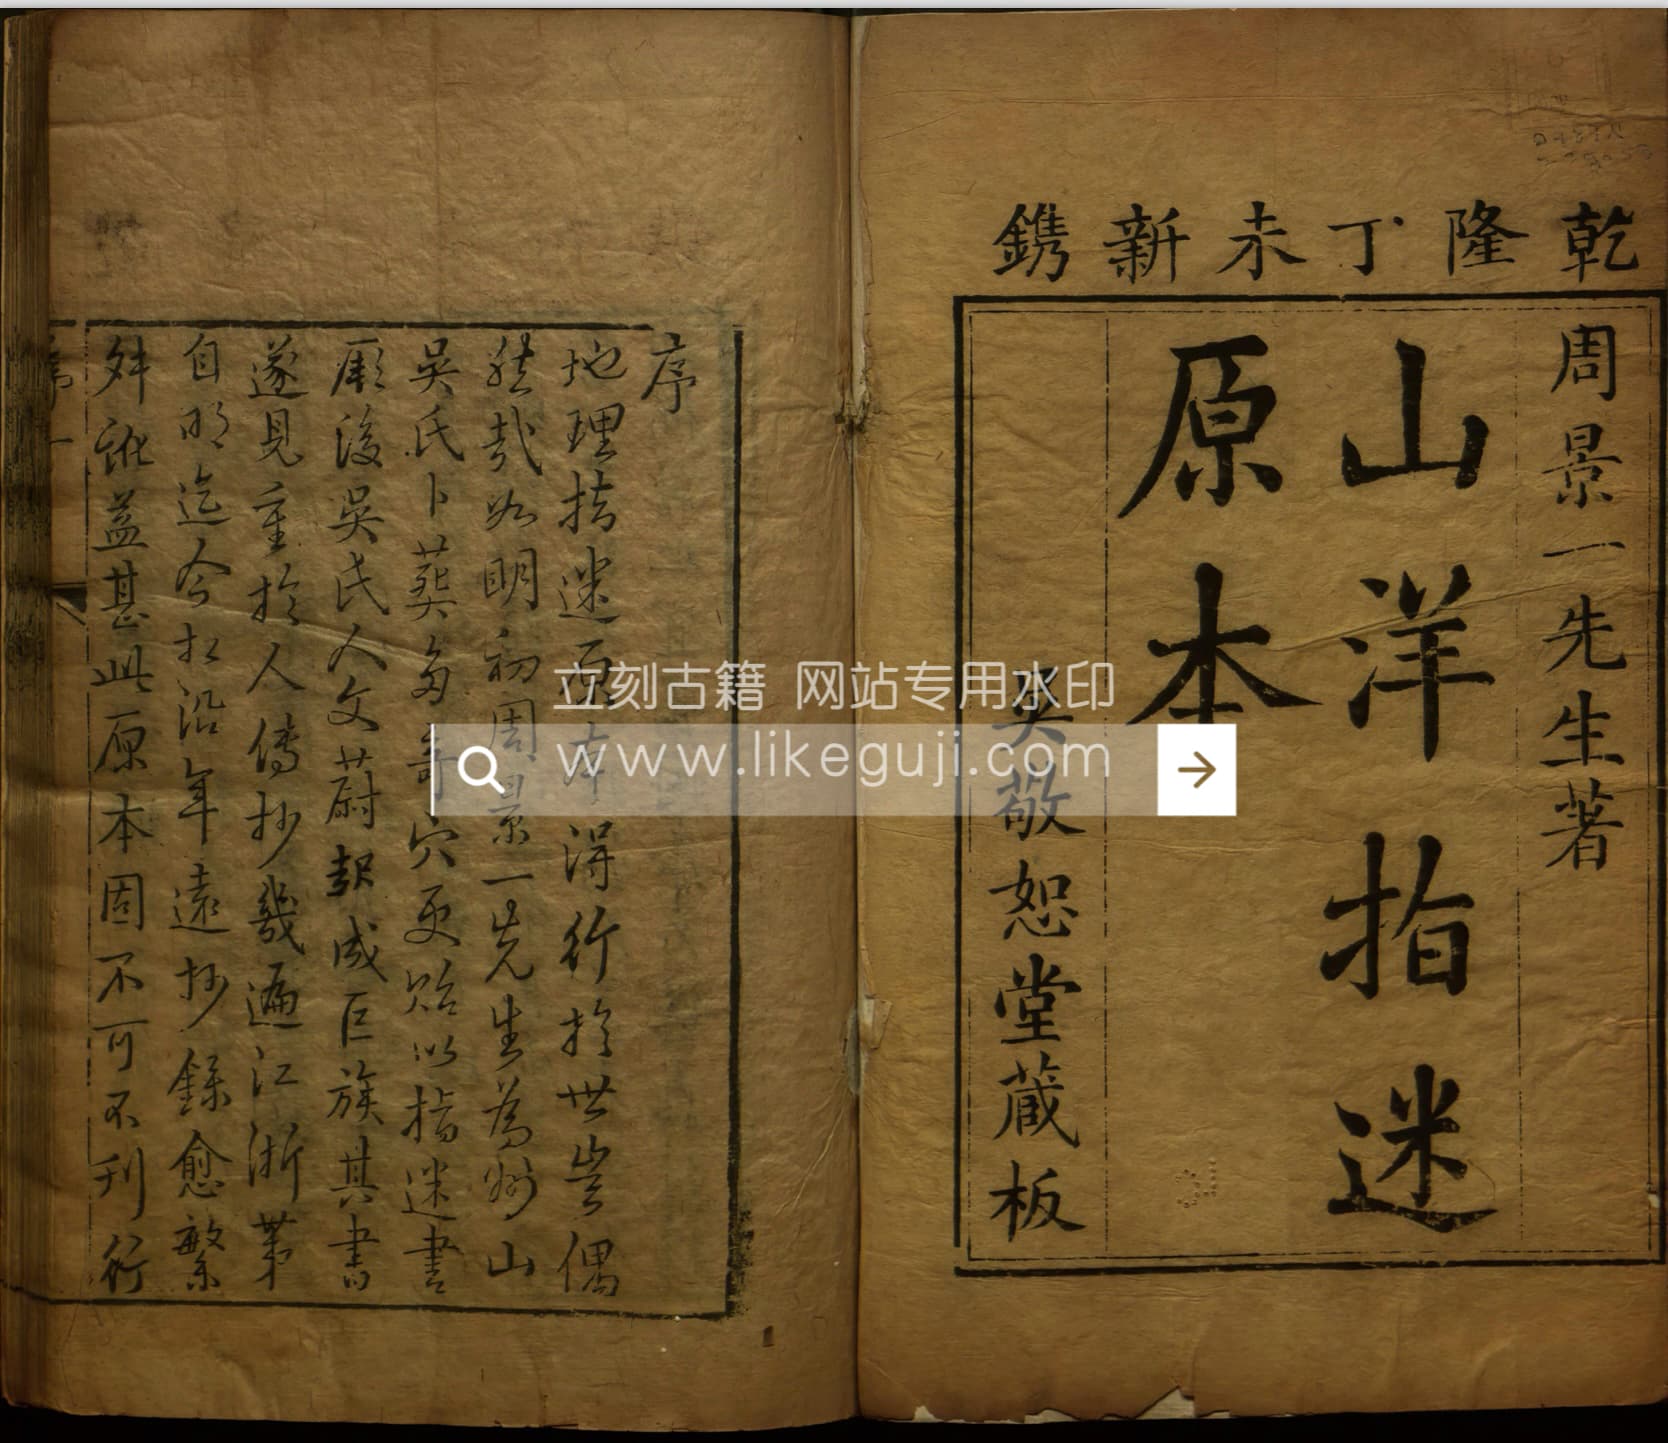 乾隆丁未新鐫
周景一先生著
山洋指迷
原本
吳敬恕堂蔵板
序
地理指迷原本得行於世豈偶
然哉如明初周景一先生為州山
吳氏卜葬多奇穴更貽以指迷書
厥後吳氏人文蔚起成巨族其書
遂見重於人傳抄幾遍江浙第
自明迄今相沿年遠抄錄愈繁
舛訛益甚此原本固不可不刊行
立刻古籍 网站专用水印
www.likeguji.com